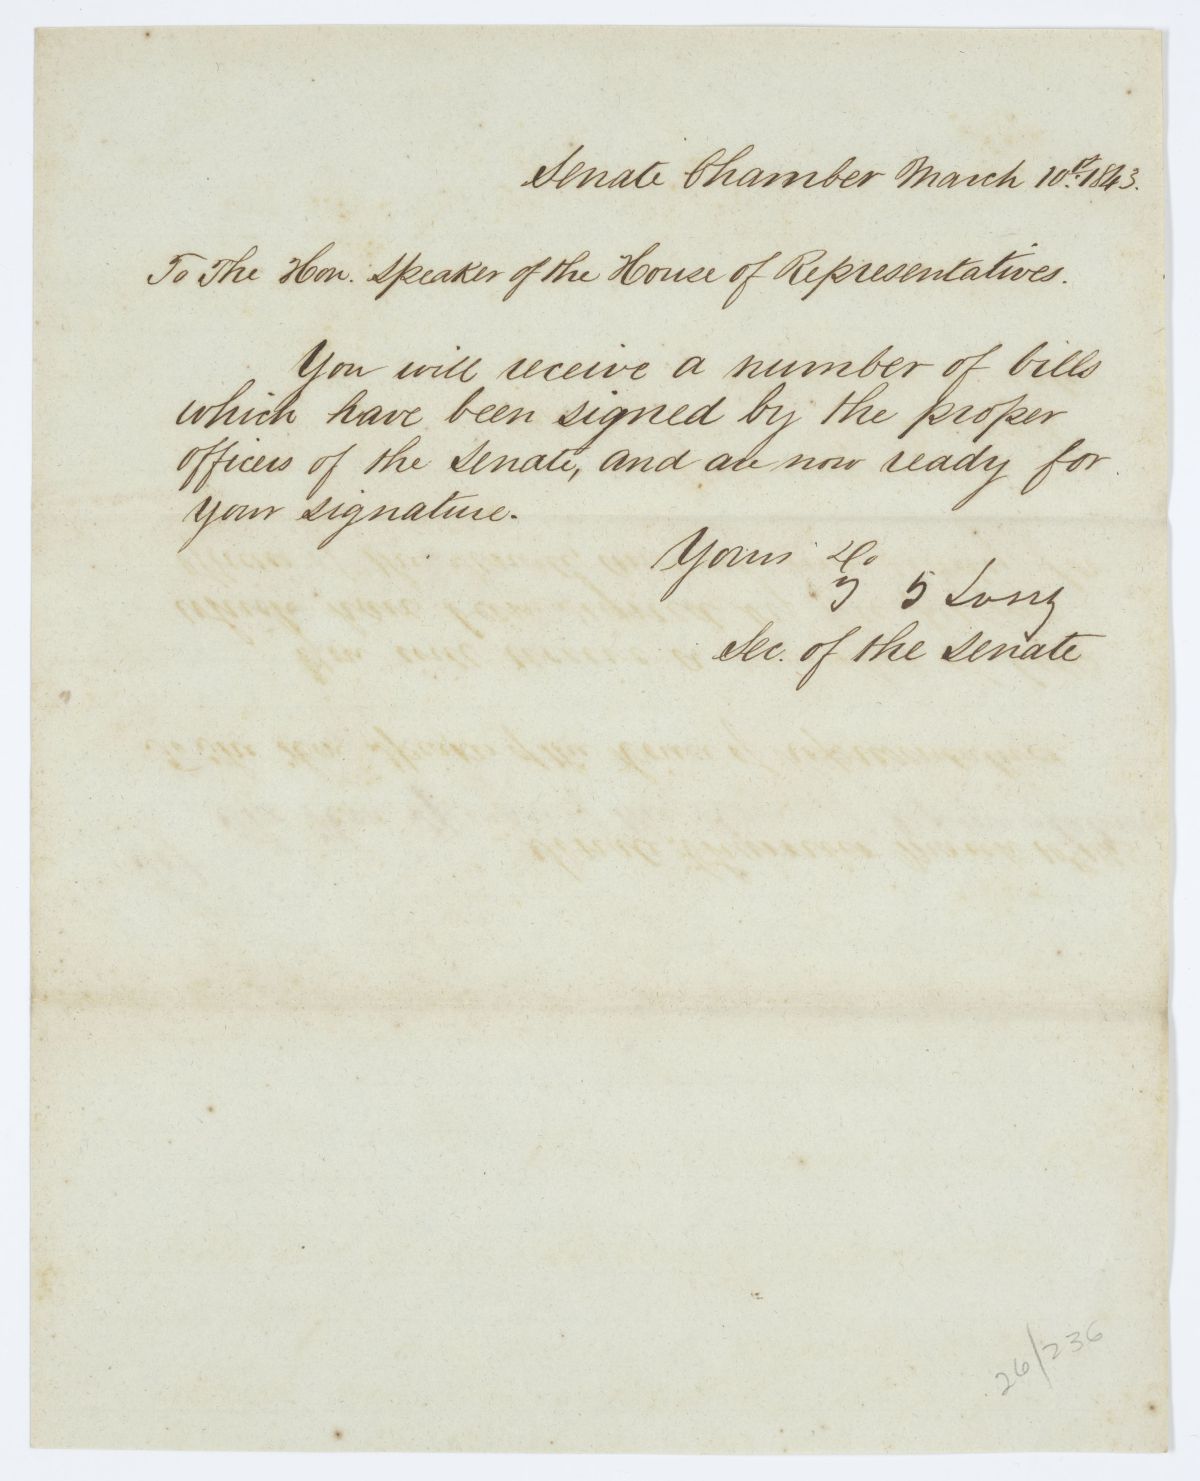 Senate Chamber March 10th. 1843.
To The Hon. Speaker of the House of Representatives.
You will receive a number of bills
which have been signed by the proper
officers of the Senate, and are now ready for
your signature.
Yours &c
Long
Sec. of the Senate
26/236